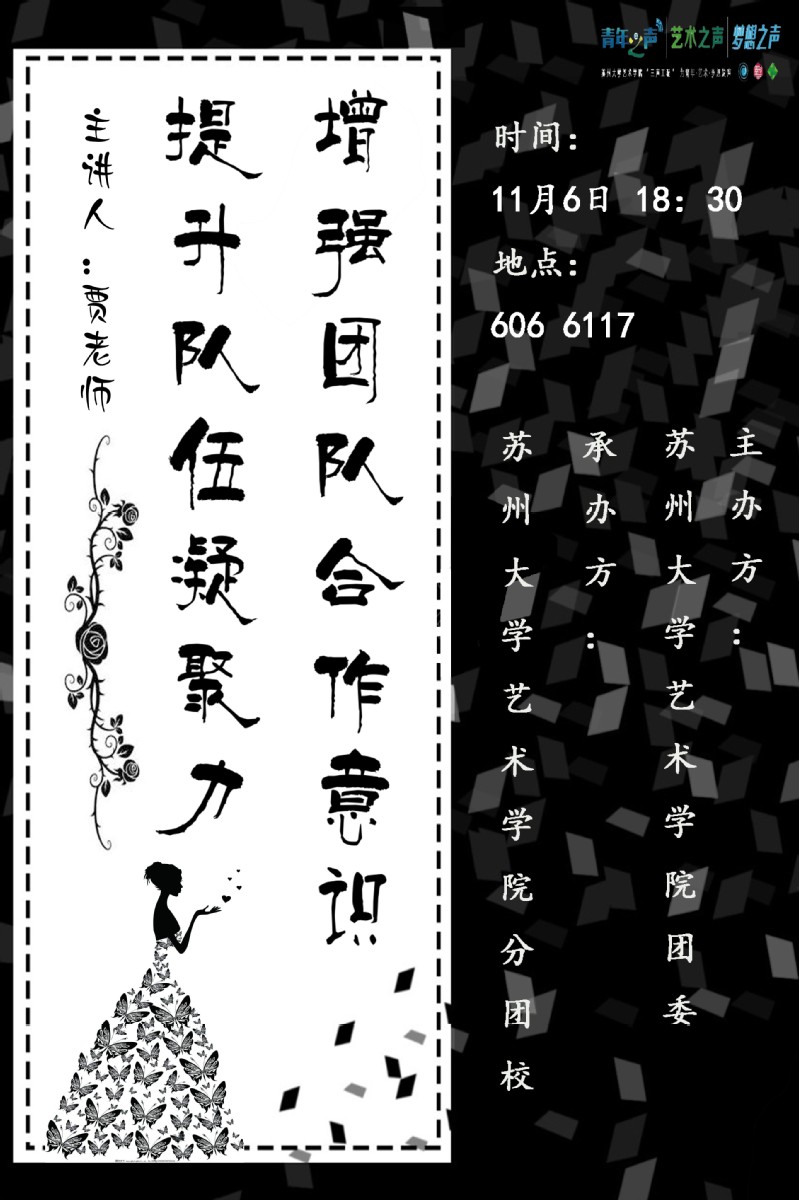 青年之声 艺术之声 梦想之声
增强团队合作意识
提升队伍凝聚力
主讲人：贾老师
时间：
11月6日 18：30
地点：
606 6117
主办方：
苏州大学艺术学院团委
承办方：
苏州大学艺术学院分团校